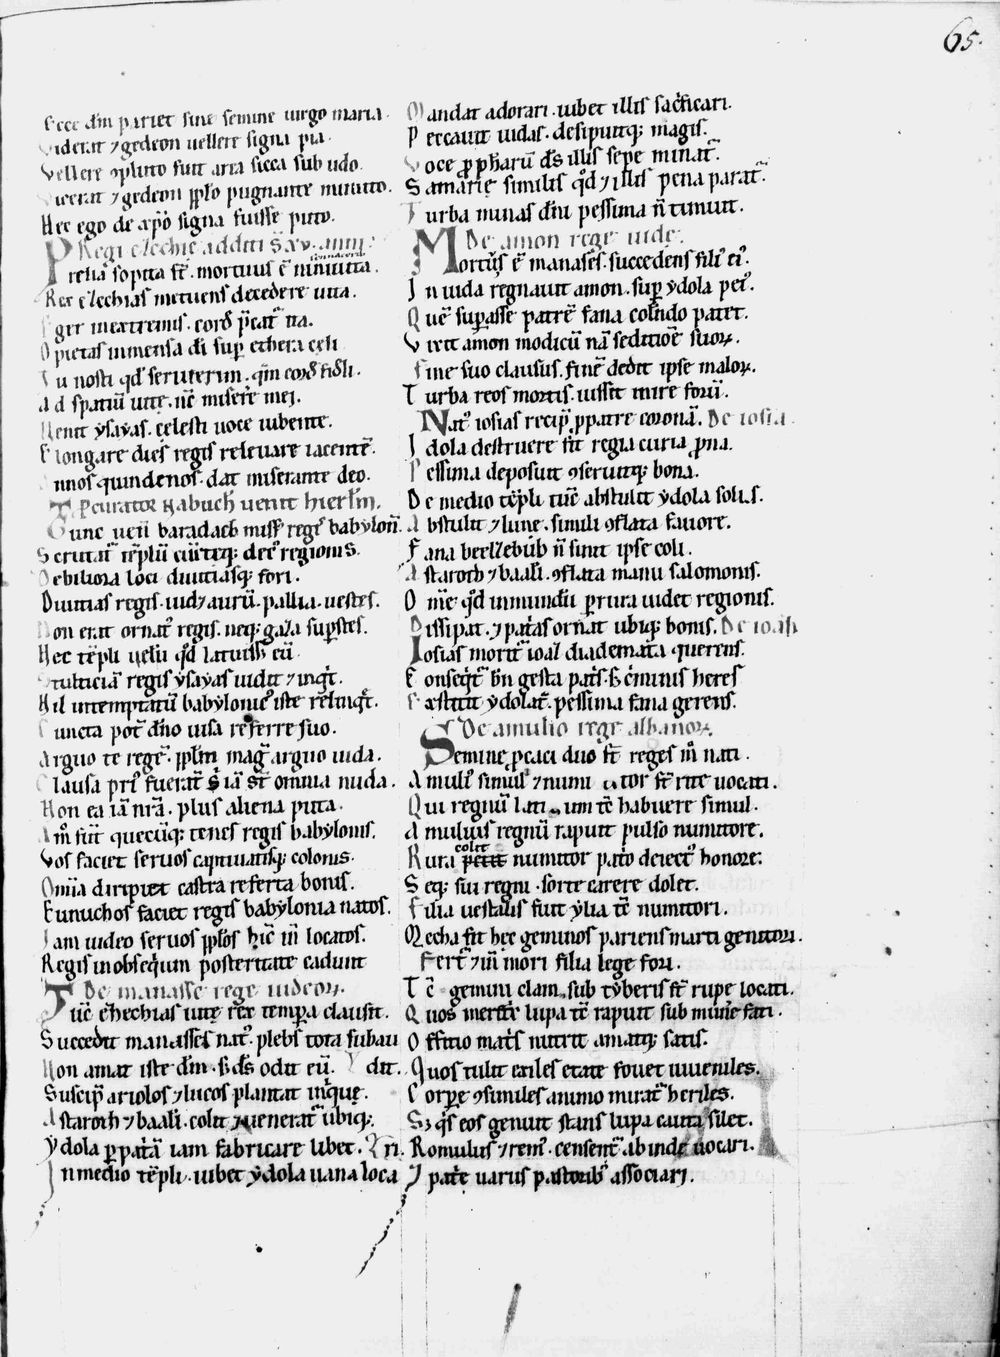 65.
Ecce dn̄m pariet sine semine uirgo maria.
Viderat ⁊ gedeon uellere signa pia.
Vellere ꝯpluto fuit aria sicca sub udo.
Vicerat ⁊ gedeon pp̄lo pugnante minuto.
Hec ego de xp̄o signa fuisse puto.
Regi ezechie additi s̄ xv. anni.
Prelia sopita st̄. mortuus ē
Rex ezechias metuens decedere uita.
Eger inextremis. cord̄ p̄cat᷑ ita.
O pietas inmensa di sup̄ ethera celi
Tu nosti qd̄ seruierim. qm̄ cord̄ fid̄li.
Ad spatiū uite. nc̄ miserere mei.
Uenit ysayas. celesti uoce iubente.
Elongare dies regis releuare iacentē.
Annos quindenos. dat miserante deo.
P̱curator Nabuch uenit hierłm.
Tunc uen̄ baradach miss᷒ rege babylon̄.
Scrutat᷑ tēplū
Debiliora loci diuitiasqꝫ fori.
Diuitias regis. uid⁊ aurū. pallia. uestes.
Non erat ornat᷒ regis. neqꝫ gaza sup̄stes.
Hec tēpli uelū qd̄ latuiss᷑ eū.
Stulticiā regis ysayas uidit ⁊ inqt̄.
Nil intemptatū babylonic᷒ iste relinqt̄.
Cuncta pot̄ dn̄o uisa referre suo.
Arguo te regē. pp̄lm̄ mag᷒ arguo iuda.
Clausa pri᷒ fuerāt s̄ iā st̄ omnia nuda.
Non ea iā nr̄a. plus aliena puta.
Am̊ sūt quecūqꝫ tenes regis babylonis.
Vos faciet seruos captiuatisqꝫ colonis.
Om̄ia diripiet castra referta bonis.
Eunuchos faciet regis babylonia natos.
Iam uideo seruos pp̄los hic in̄ locatos.
Regis inobseqium posteritate cadunt
De manasse rege iudeoꝝ.
Tūc ezhechias uite rex tempora clausit.
Succedit manasses nat᷒. plebs tota subau
Non amat iste dn̄m. s; d̄s odit eū. dit.
Suscip̄ ariolos ⁊ lucos plantat iniq̄ue.
Astaroth ⁊ baali. colit ⁊ uenerat᷑ ubiqꝫ.
Ydola p̱ pat̄a iam fabricare libet.
In medio tēpli. iubet ydola uana loca
Mandat adorari. iubet illis sac̄ficari.
Peccauit iudas. desipuitqꝫ magis.
Voce p̱ pp̄harū d̄s illis sepe minat᷑.
Samarie similis qd̄ ⁊ illis pena parat᷑.
Turba minas dn̄i pessima n̄ timuit.
De amon rege iude.
Mortu᷒ ē manases. succedens fili᷒ ei᷒.
In iuda regnauit amon. sup̄ ydola pei᷒.
Quē sup̱asse patrē fana colendo patet.
Vixit amon modicū nā seditiōe suoꝝ.
Fine suo clausus. finē dedit ipse maloꝝ.
Turba reos mortis. iussit inire forū.
Nat᷒ iosias recip̄ p̱ patre coronā. De iosia.
Idola destruere fit regia curia p̱na.
Pessima deposuit ꝯseruitqꝫ bona.
De medio tēpli tūc abstulit ydola solis.
Abstulit ⁊ lune. simili ꝯflata fauore.
Fana beelzebub n̄ sinit ipse coli.
Astaroth ⁊ baali. ꝯflata manu salomonis.
Om̄e qd̄ inmundū p̱ rura uidet regionis.
Dissipat. ⁊ pat̄as ornat ubiqꝫ bonis. De ioah
Iosias morit᷑ ioaz diademata querens.
Conseqt᷑ bn̄ gesta pat̄s. s; c̄minis heres
Exstitit ydolat᷑. pessima fana gerens.
De amulio rege albanoꝝ.
Semine p̱caci duo st̄ reges in̄ nati.
Amuli᷒ simul ⁊ numi tor st̄ rite uocati.
Qui regnū lati um tē habuere simul.
Amulius regnū rapuit pulso numitore.
colit
Rura petit numitor pat̄o deiect᷒ honore.
Seqꝫ sui regni. sorte carere dolet.
Filia uestalis fuit ylia tē numitori.
Mecha fit hec geminos pariens marti genitori.
Fert᷑ ⁊ in̄ mori filia lege fori.
Tc̄ gemini clam. sub tyberis st̄ rupe locati.
Quos lupa tē rapuit sub mun̄e fati.
Officio mat̄s nutrit amatqꝫ satis.
Quos tulit exiles etate fouet iuueniles.
Corpe ꝯsimiles animo mirat᷑ heriles.
S; qs̄ eos genuit stans lupa cauta silet.
Romulus ⁊ rem᷒. censent᷑ abinde uocari.
I pat̄e uarus pastorib᷒ associari.